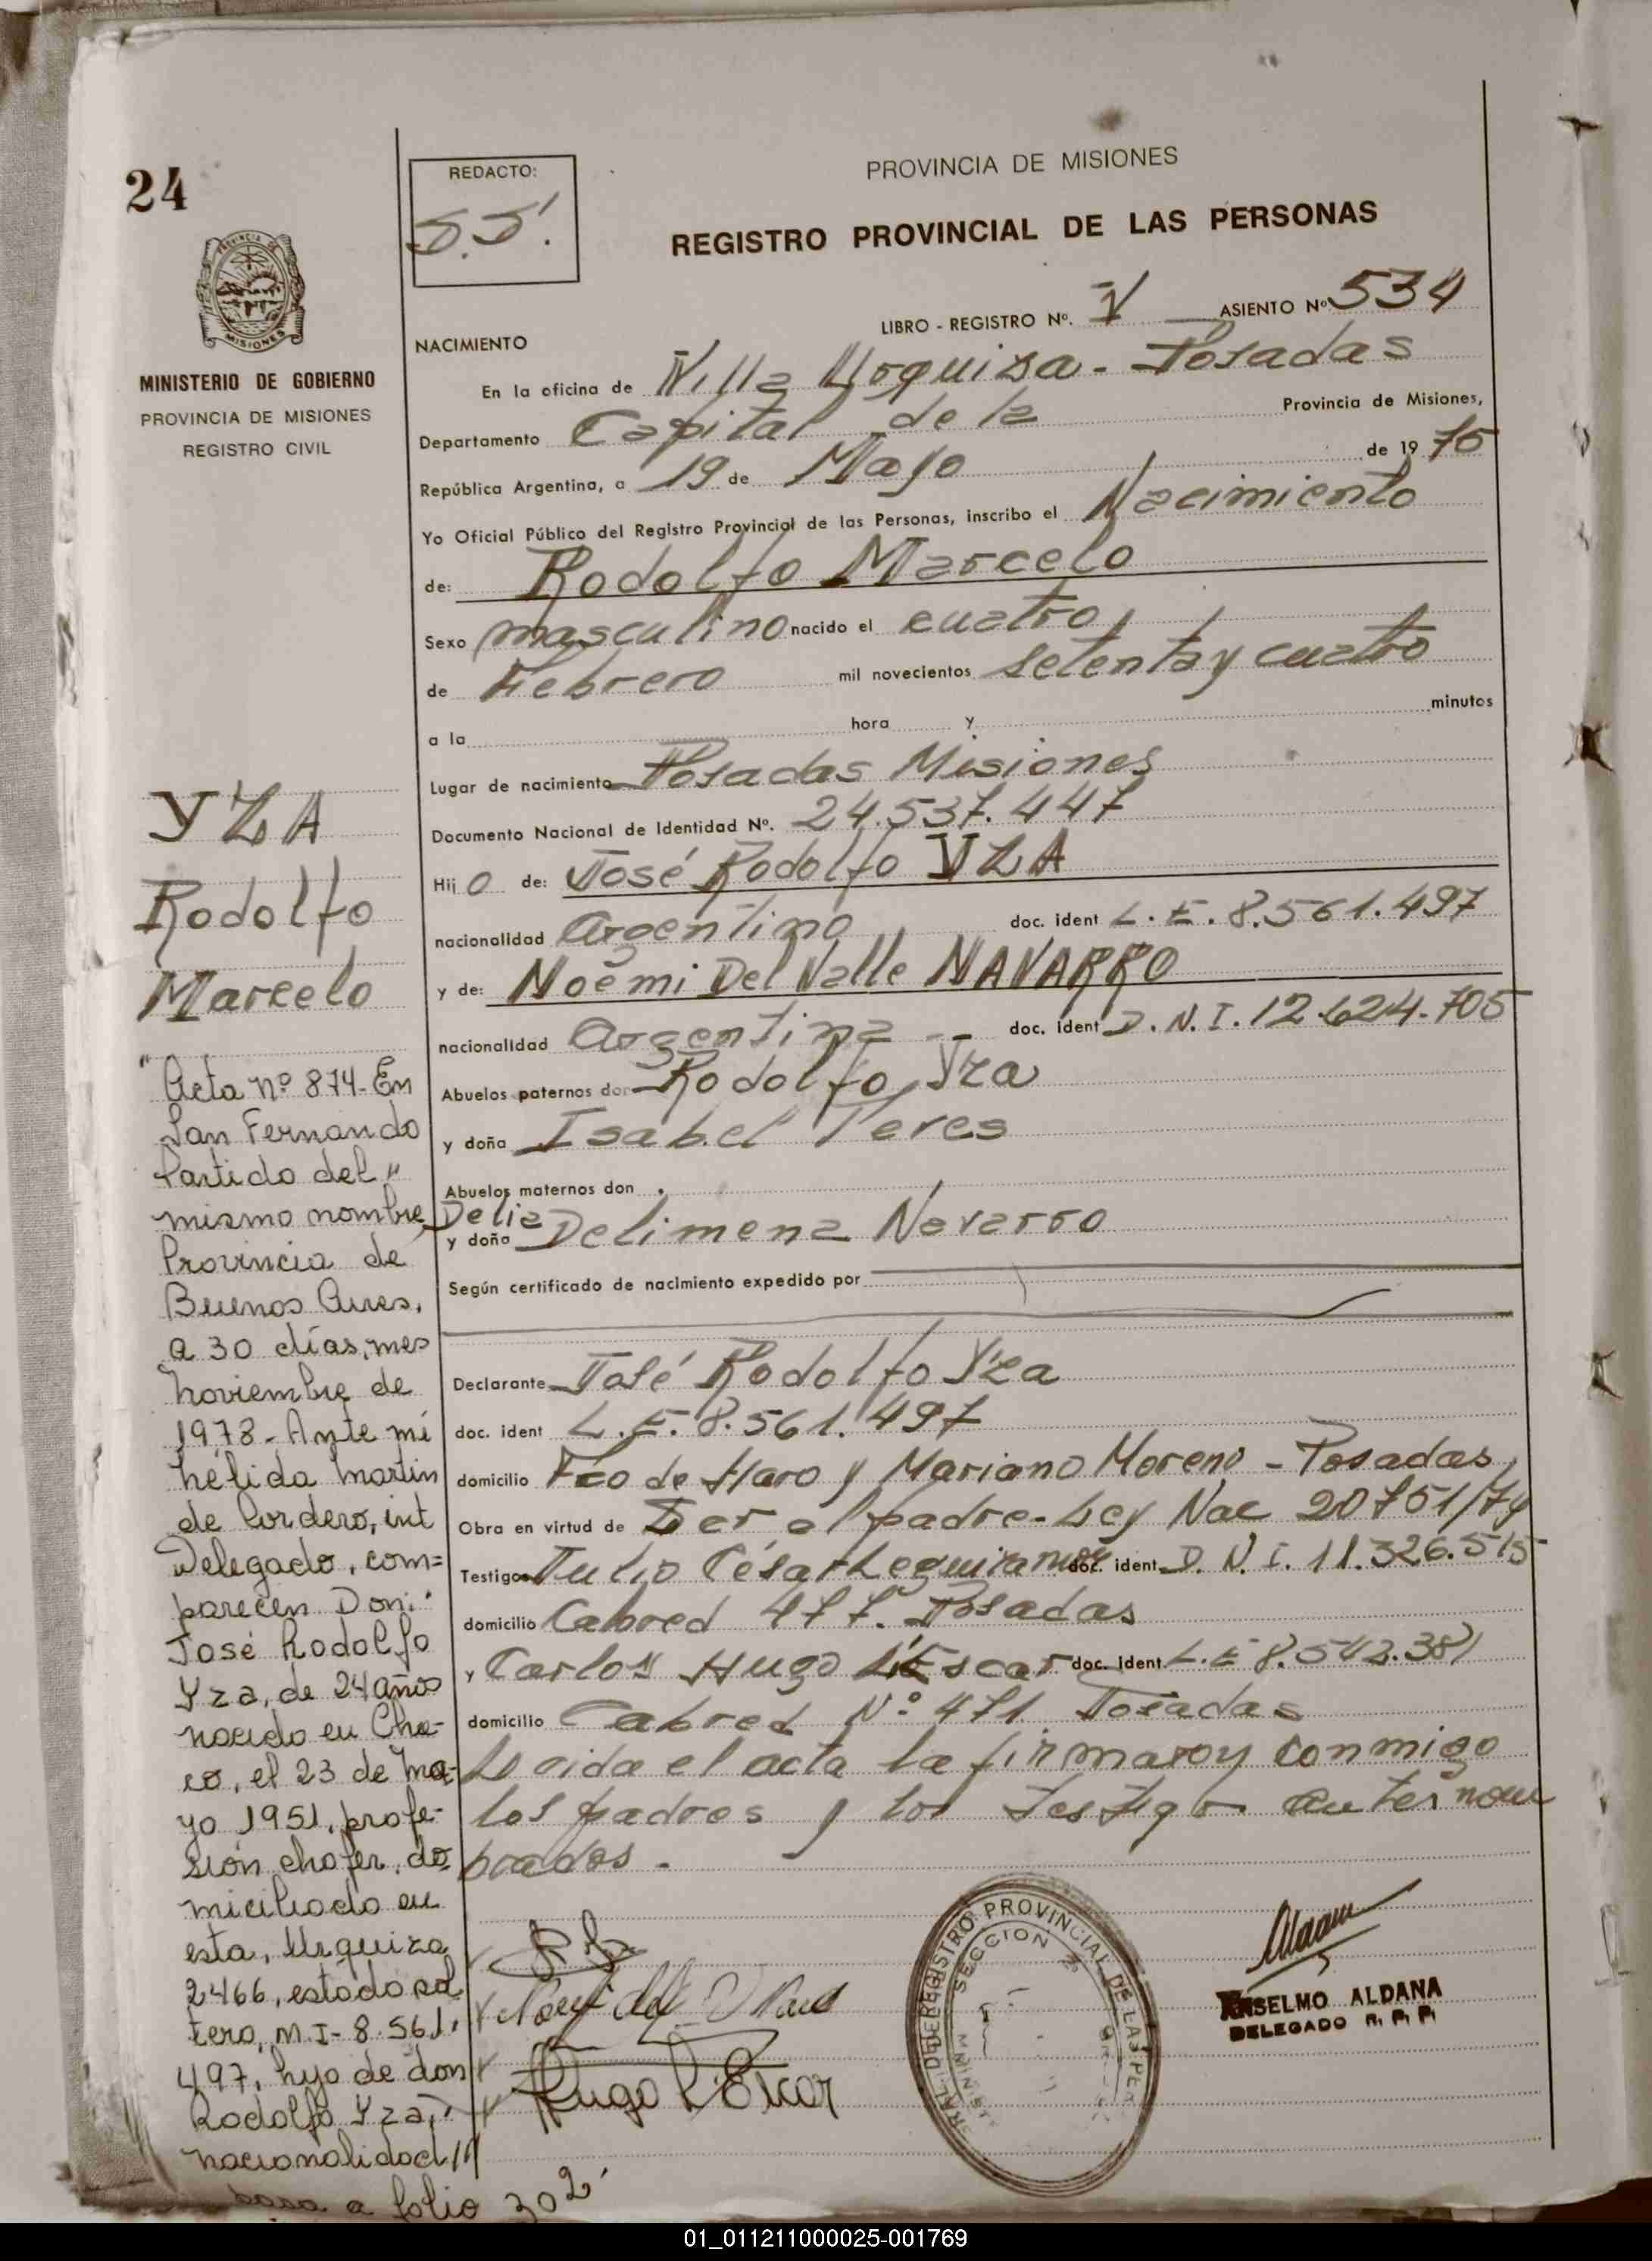 24
REDACTO:
S.S.
PROVINCIA DE MISIONES
REGISTRO PROVINCIAL DE LAS PERSONAS
PROVINCIA DE MISIONES
MINISTERIO DE GOBIERNO
PROVINCIA DE MISIONES
REGISTRO CIVIL
LIBRO - REGISTRO Nº. V ASIENTO Nº 534
NACIMIENTO
En la oficina de Villa Urquisa - Posadas
Departamento Capital de la Provincia de Misiones,
República Argentina, a 19 de Mayo de 1975
Yo Oficial Público del Registro Provincial de las Personas, inscribo el Nacimiento
de: Rodolfo Marcelo
Sexo masculino nacido el cuatro
de Febrero mil novecientos setenta y cuatro
a la hora y minutos
Lugar de nacimiento Posadas Misiones
Documento Nacional de Identidad Nº. 24.537.447
Hijo de: José Rodolfo YZA
nacionalidad Argentino doc. ident L.E. 8.561.497
y de: Noemi Del Valle NAVARRO
nacionalidad Argentina -- doc. ident D.N.I. 12.624.705
Abuelos paternos don Rodolfo Yza
y doña Isabel Peres
Abuelos maternos don
y doña Delia Delimena Navarro
Según certificado de nacimiento expedido por
Declarante José Rodolfo Yza
doc. ident L.E. 8.561.497
domicilio Fco de Haro y Mariano Moreno - Posadas
Obra en virtud de Ser el padre - Ley Nac 20751/74
Testigos Julio César doc. ident D.N.I. 11.326.515
domicilio Cabred 477. Posadas
y Carlos Hugo L'Escar doc. ident L.E 8.542.381
domicilio Cabred Nº 471 Posadas
Leida el acta la firmaron conmigo
los padres y los testigos antes nom
brados.-
YZA
Rodolfo
Marcelo
"Acta nº 874- En
San Fernando
Partido del "
mismo nombre,
Provincia de
Buenos Aires,
a 30 días, mes
noviembre de
1978 - Ante mi
Nélida Martin
de Cordero, int
Delegado, com=
parecen Don:
José Rodolfo
Yza, de 24 años
nacido en Cha-
co, el 23 de ma-
yo 1951, profe-
sión chofer, do-
miciliado en
esta, Urquiza
2466, estado sol
tero, M.I- 8.561.
497, hijo de don
Rodolfo Yza,
nacionalidad //
pasa a folio 302
Hugo L'Escar
REGISTRO PROVINCIAL DE LAS PER
SECCION
ANSELMO ALDANA
DELEGADO R. P. P.
01_011211000025-001769